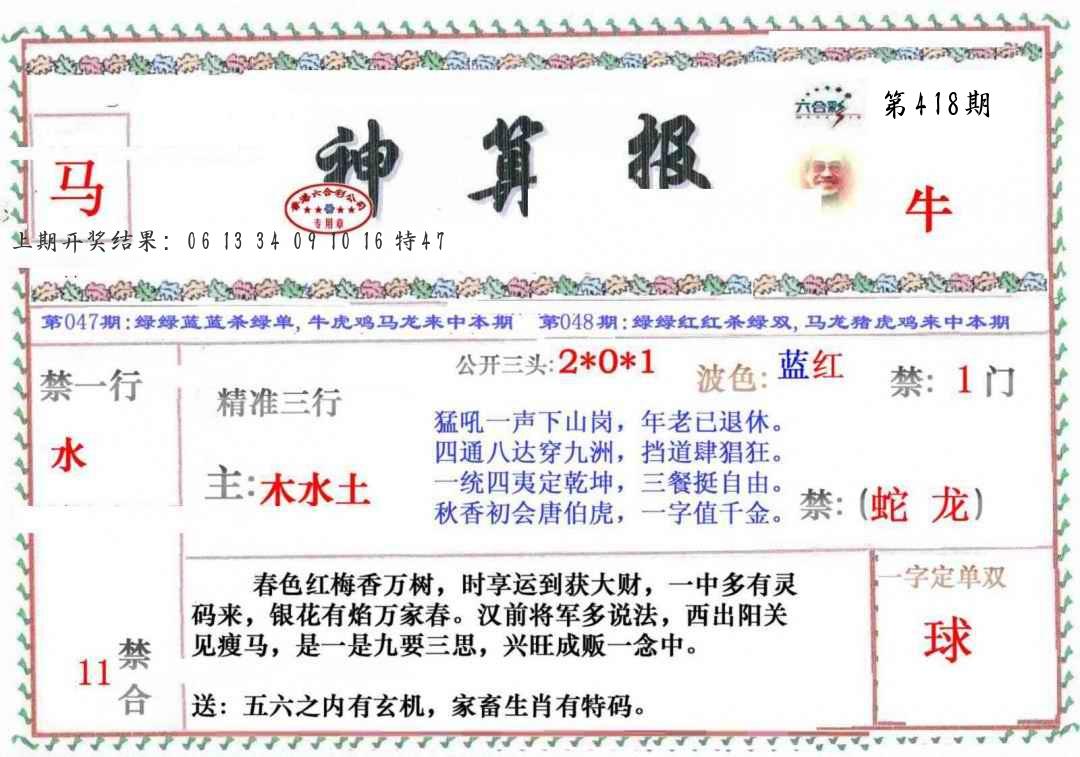 六合彩
第418期
神算报
马
香港六合彩公司
专用章
牛
上期开奖结果：06 13 34 09 10 16 特47
第047期:绿绿蓝蓝杀绿单,牛虎鸡马龙来中本期 第048期:绿绿红红杀绿双,马龙猪虎鸡来中本期
禁一行
水
精准三行
主:木水土
公开三头:2*0*1
波色:蓝红
禁:1门
猛吼一声下山岗，年老已退休。
四通八达穿九洲，挡道肆猖狂。
一统四夷定乾坤，三餐挺自由。
秋香初会唐伯虎，一字值千金。
禁:(蛇 龙)
春色红梅香万树，时享运到获大财，一中多有灵
码来，银花有焰万家春。汉前将军多说法，西出阳关
见瘦马，是一是九要三思，兴旺成贩一念中。
送：五六之内有玄机，家畜生肖有特码。
11
禁合
一字定单双
球